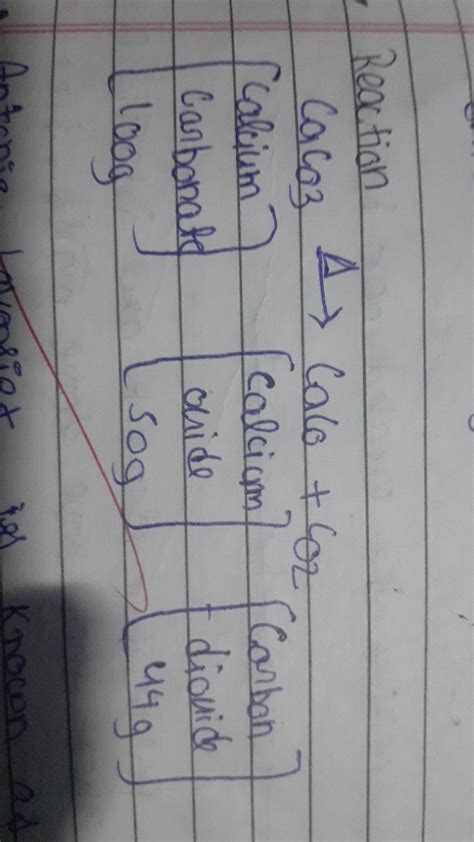 Reaction
CaCO3 Δ→ CaO + CO2
[Calcium Carbonate 100g] [Calcium oxide 50g] [Carbon dioxide 44g]
Antonie Lavoisier is known as